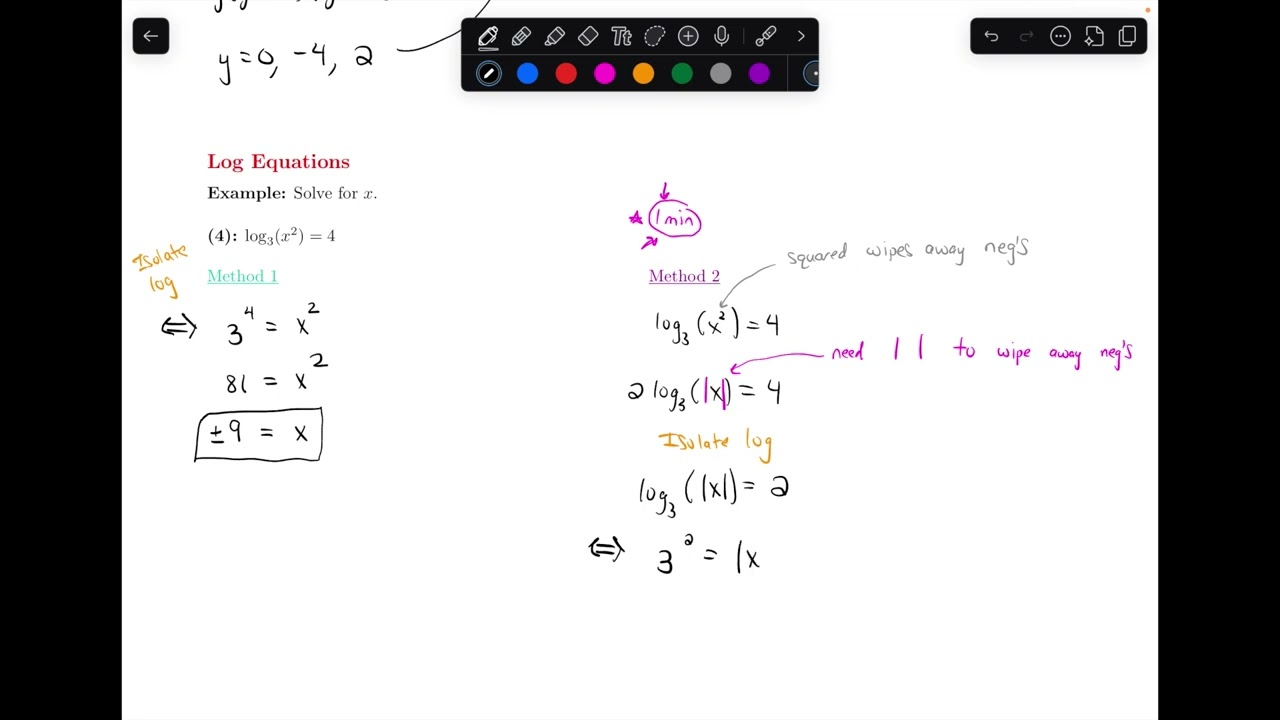 y = 0, -4, 2
Tt
Log Equations
Example: Solve for x.
(4): log₃(x²) = 4
Isolate
log
Method 1
⇔ 3⁴ = x²
81 = x²
±9 = x
1 min
squared wipes away neg's
Method 2
log₃(x²) = 4
need | | to wipe away neg's
2 log₃(|x|) = 4
Isolate log
log₃(|x|) = 2
⇔ 3² = |x